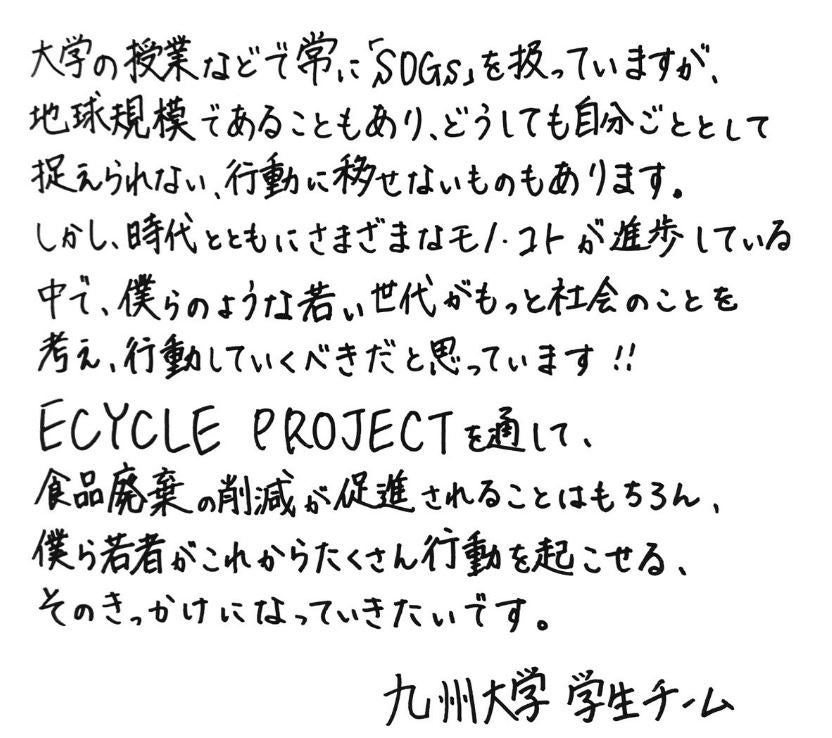 大学の授業などで常に「SDGs」を扱っていますが、
地球規模であることもあり、どうしても自分ごととして
捉えられない、行動に移せないものもあります。
しかし、時代とともにさまざまなモノ・コトが進歩している
中で、僕らのような若い世代がもっと社会のことを
考え、行動していくべきだと思っています!!
ECYCLE PROJECTを通して、
食品廃棄の削減が促進されることはもちろん、
僕ら若者がこれからたくさん行動を起こせる、
そのきっかけになっていきたいです。
九州大学 学生チーム